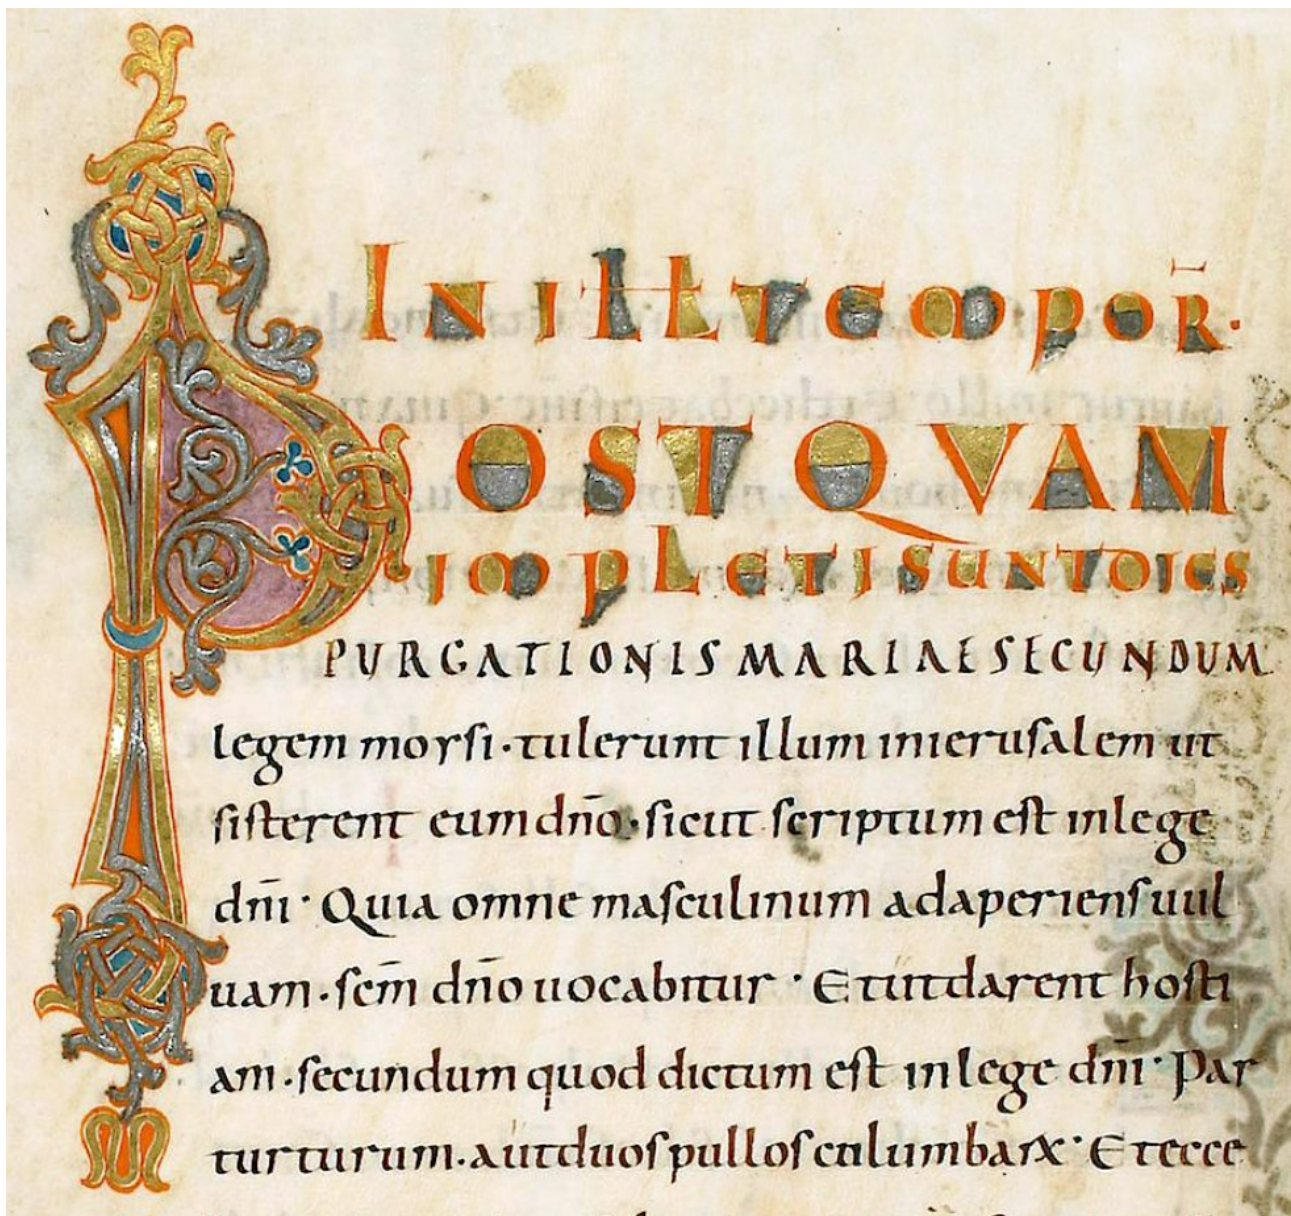 IN ILLO TEMPOR̄.
POSTQVAM
IMPLETI SUNT DIES
PURGATIONIS MARIAE SECUNDUM
legem moysi · tulerunt illum inierusalem ut
sisterent eum dn̄o · sicut scriptum est inlege
dn̄i · Quia omne masculinum adaperiens uul
uam · sc̄m dn̄o uocabitur · Etutdarent hosti
am · secundum quod dictum est inlege dn̄i · Par
turturum · autduos pullos columbarꝝ · Etecce